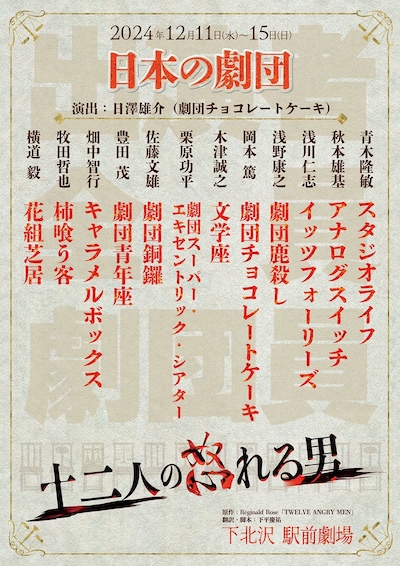 2024年12月11日(水)～15日(日)
日本の劇団
演出：日澤雄介（劇団チョコレートケーキ）
青木隆敏 スタジオライフ
秋本雄基 アナログスイッチ
浅川仁志 イッツフォーリーズ
浅野康之 劇団鹿殺し
岡本 篤 劇団チョコレートケーキ
木津誠之 文学座
栗原功平 劇団スーパー・
エキセントリック・シアター
佐藤文雄 劇団銅鑼
豊田 茂 劇団青年座
畑中智行 キャラメルボックス
牧田哲也 柿喰う客
横道 毅 花組芝居
劇団員
十二人の怒れる男
原作：Reginald Rose「TWELVE ANGRY MEN」
翻訳・脚本：下平慶祐
下北沢 駅前劇場